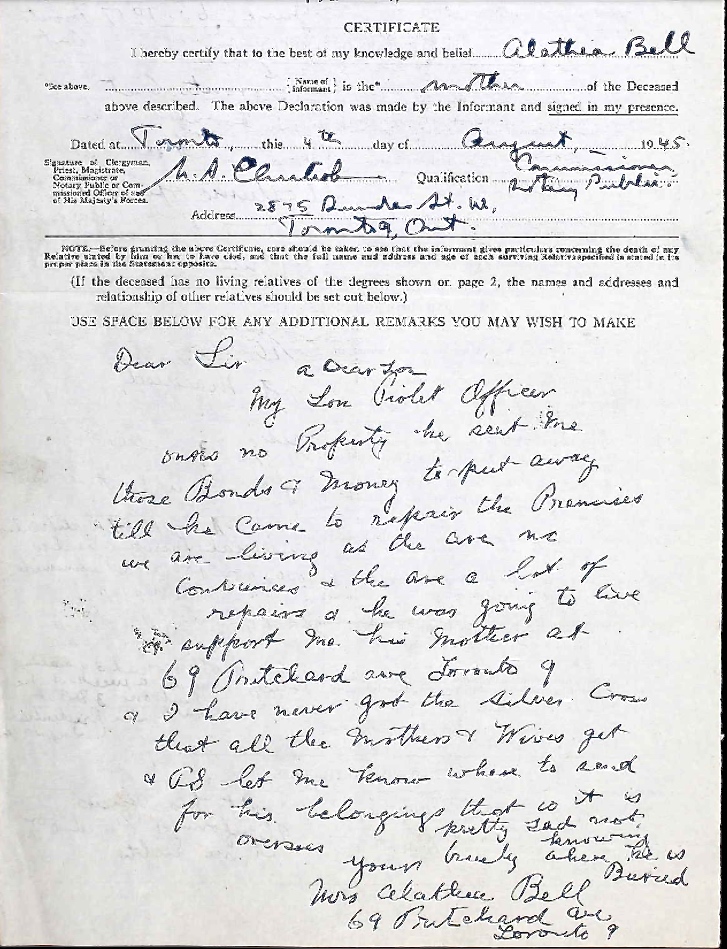 CERTIFICATE
I hereby certify that to the best of my knowledge and belief Alathea Bell
*See above. {Name of informant} is the* mother of the Deceased
above described. The above Declaration was made by the Informant and signed in my presence.
Dated at Toronto, this 4th day of August, 1945.
Signature of Clergyman, Priest, Magistrate, Commissioner or Notary Public or Commissioned Officer of any of His Majesty's Forces.
Qualification Commissioner, Notary Public.
Address 2875 Dundas St. W,
Toronto 9, Ont.
NOTE.—Before granting the above Certificate, care should be taken to see that the informant gives particulars concerning the death of any
Relative stated by him or her to have died, and that the full name and address and age of each surviving Relative specified is stated in its
proper place in the Statement opposite.
(If the deceased has no living relatives of the degrees shown on page 2, the names and addresses and
relationship of other relatives should be set out below.)
USE SPACE BELOW FOR ANY ADDITIONAL REMARKS YOU MAY WISH TO MAKE
Dear Sir a Dear Son
My Son Piolet Officer
owns no Property he sent Me
those Bonds & Money to put away
till he Came to repair the Premises
we are living as the are no
& the are a lot of
repairs & he was going to live
support Me his Mother at
69 Pritchard ave Toronto 9
& I have never got the Silver Cross
that all the Mothers & Wives get
& PS let Me know where to send
for his belongings that is it is
overseas pretty sad not
knowing
yours truly where he is
Buried
Mrs Alathea Bell
69 Pritchard Ave
Toronto 9